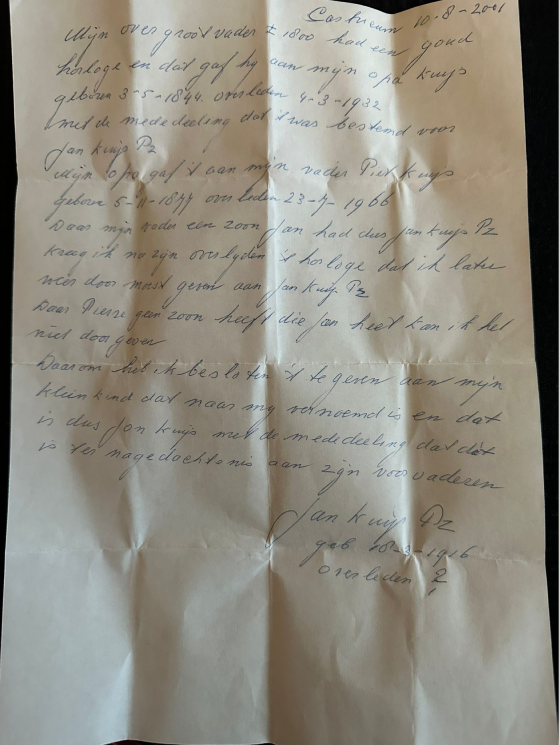 Castricum 10-8-2001
Mijn over groot vader ± 1800 had een goud
horloge en dat gaf hij aan mijn opa Kuijs
geboren 3-5-1844. overleden 4-3-1932
met de mededeeling dat 't was bestemd voor
Jan Kuijs Pz
Mijn opa gaf 't aan mijn vader Piet Kuijs
geboren 5-11-1877 overleden 23-7-1966
Daar mijn vader een zoon Jan had dus Jan Kuijs Pz
kreeg ik na zijn overlyden 't horloge dat ik later
weer door moest geven aan Jan Kuijs Pz
Daar Pierre geen zoon heeft die Jan heet kan ik het
niet door geven
Daarom heb ik besloten 't te geven aan mijn
kleinkind dat naar my vernoemd is en dat
is dus Jan Kuijs met de mededeeling dat dit
is ter nagedachtenis aan zijn voorvaderen
Jan Kuijs Pz
geb 18- -1916
overleden ?